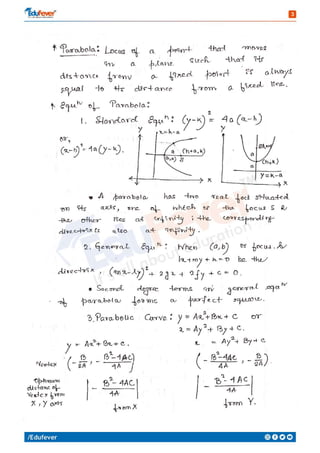 Edufever
3
* Parabola: Locus of a point that moves
in a plane such that its
distance from a fixed point is always
equal to its distance from a fixed line.
* Equⁿ of Parabola:
1. Standard Equⁿ: (y-k)² = 4a(x-h)
or,
(x-h)² = 4a(y-k).
Y x=h-a Y
a (h+a,k)
(h,k)
a
(h,k)
y=k-a
X X
• A parabola has two real foci situated
on its axis, one of which is the focus S &
the other lies at infinity; the corresponding
directrix is also at infinity.
2. General Equⁿ: When (a,b) is focus &
lx+my+n=0 be the
directrix: (mx-ly)² + 2gx + 2fy + c = 0.
• Second degree terms in general eqnⁿ
of parabola forms a perfect square.
3. Parabolic Curve: y = Ax²+Bx+C or
x = Ay²+By+C.
y = Ax²+Bx+C. x = Ay²+By+C
Vertex (-B/2A, -B²-4AC/4A) (-B²-4AC/4A, -B/2A)
distance of
Vertex from
X, Y axis
|-B²-4AC/4A| from X |-B²-4AC/4A| from Y.
/Edufever